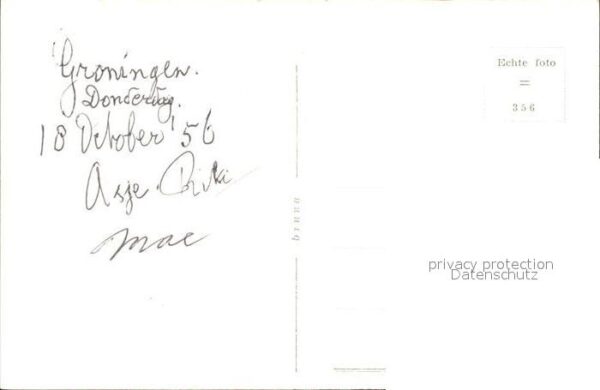 Groningen.
Donderdag.
18 October '56
Asje. Rika
Mac
Echte foto
=
356
privacy protection
Datenschutz